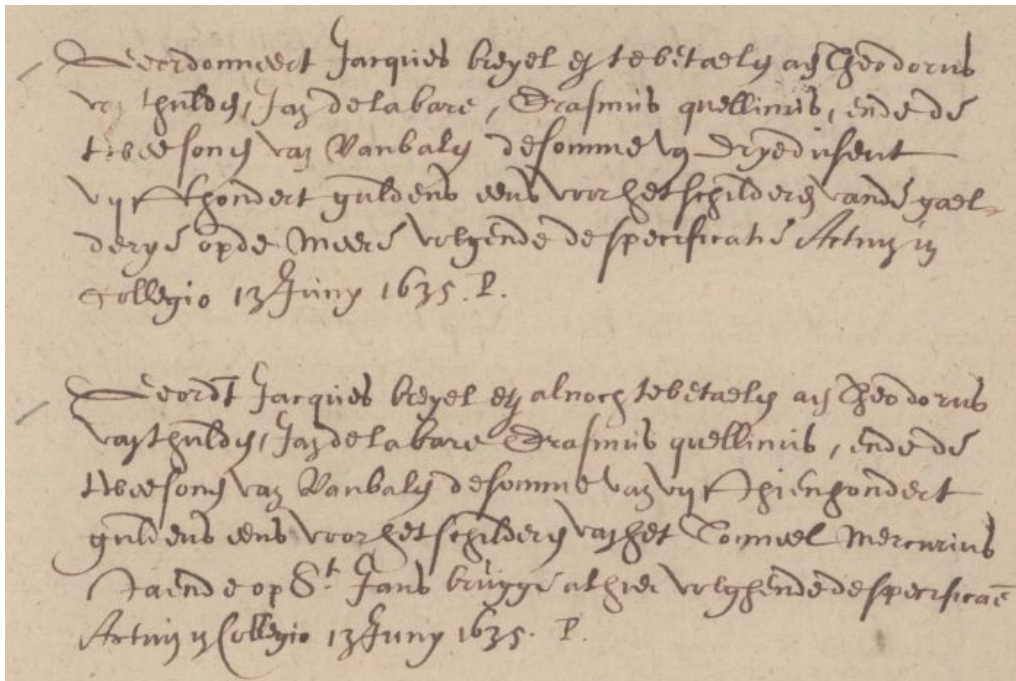 Geordonneert Jacques breyel es te betaelen aen Theodorus
van thulden, Jan de la bare, Erasmus quellinus, ende de
twee sonen van Vanbalen de somme van dryedusent
vyfthondert guldens eens voor het schilderen vande gael-
derye op de Meere volgende de specificatie Actum in
Collegio 13 Juny 1635. P.
Geordt Jacques breyel es alnoch te betaelen aen Theodorus
van thulden, Jan de la bare Erasmus quellinus, ende de
twee sonen van Vanbalen de somme van vyfthienhondert
guldens eens voor het schilderen van het Tonneel Mercurius
staende op St. Jans brugge alhier volghende de specificaē
Actum in Collegio 13 Juny 1635. P.